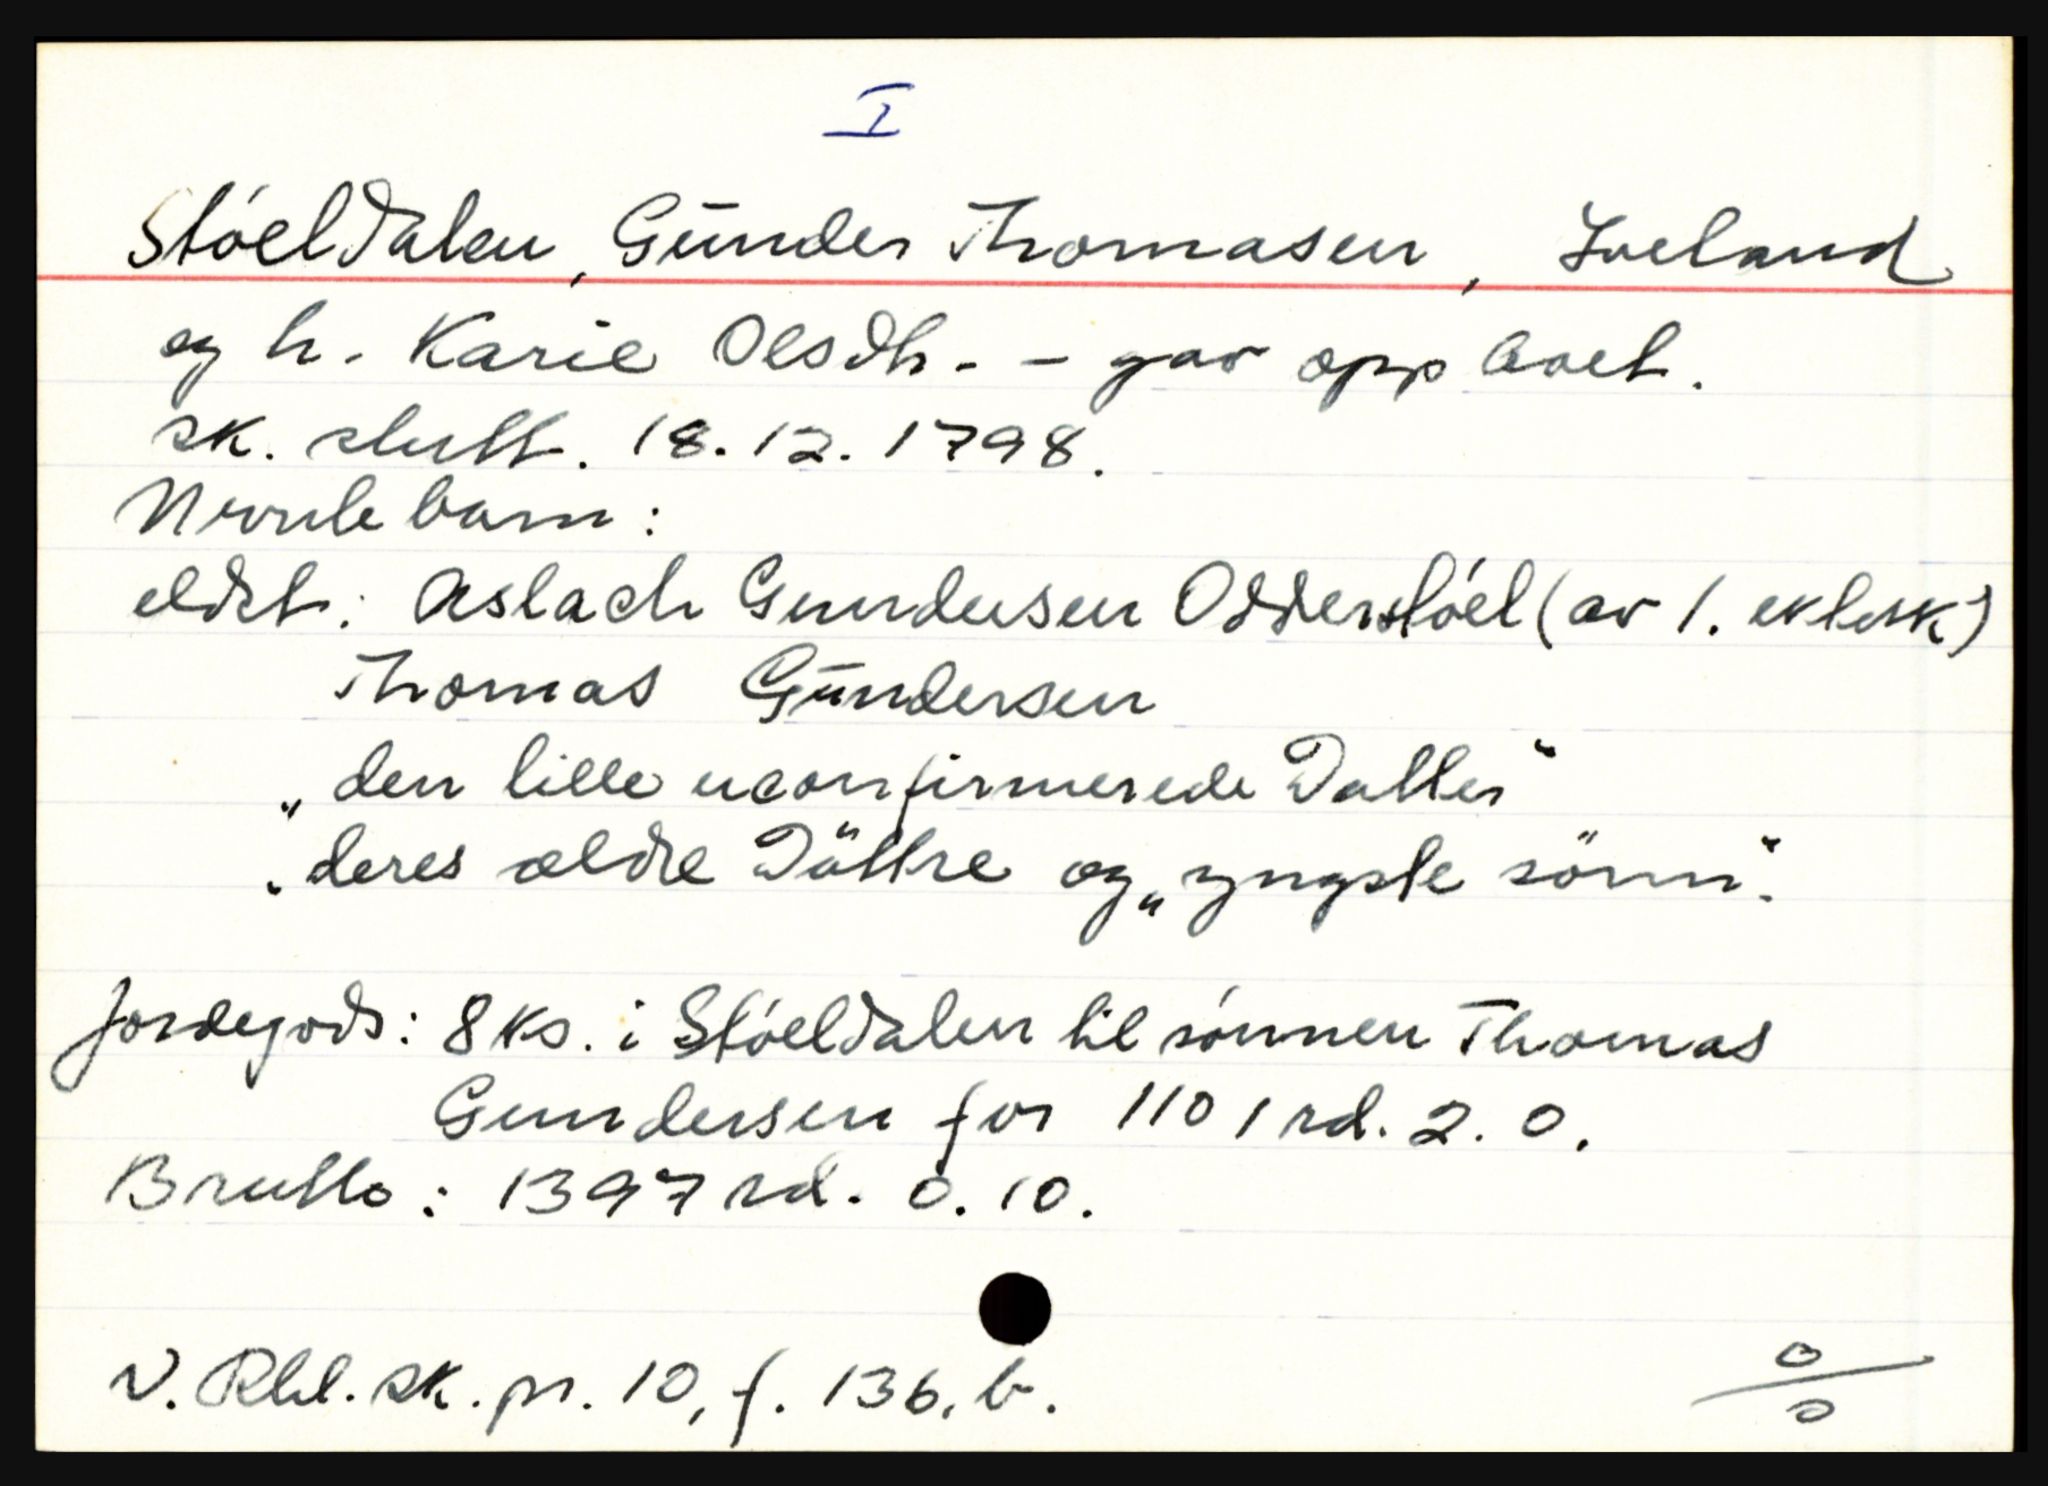 I
Stóeldalen, Gunder Thomasen, Iveland
og h. Karie Olsdtr. - gav opp boet.
sk. slutt. 18.12.1798.
Nevnte barn:
eldst: Aslach Gundersen Odderstóel (av 1. ektesk)
Thomas Gundersen
„den lille uconfirmerede Datter"
„deres ældre Döttre og „yngste sönn".
Jordegods: 8 ks. i Stóeldalen til sónnen Thomas
Gundersen for 1101 rd. 2. 0.
Brutto: 1397 rd. 0. 10.
N. Rbl. sk. pr. 10, f. 136. b.
o/o